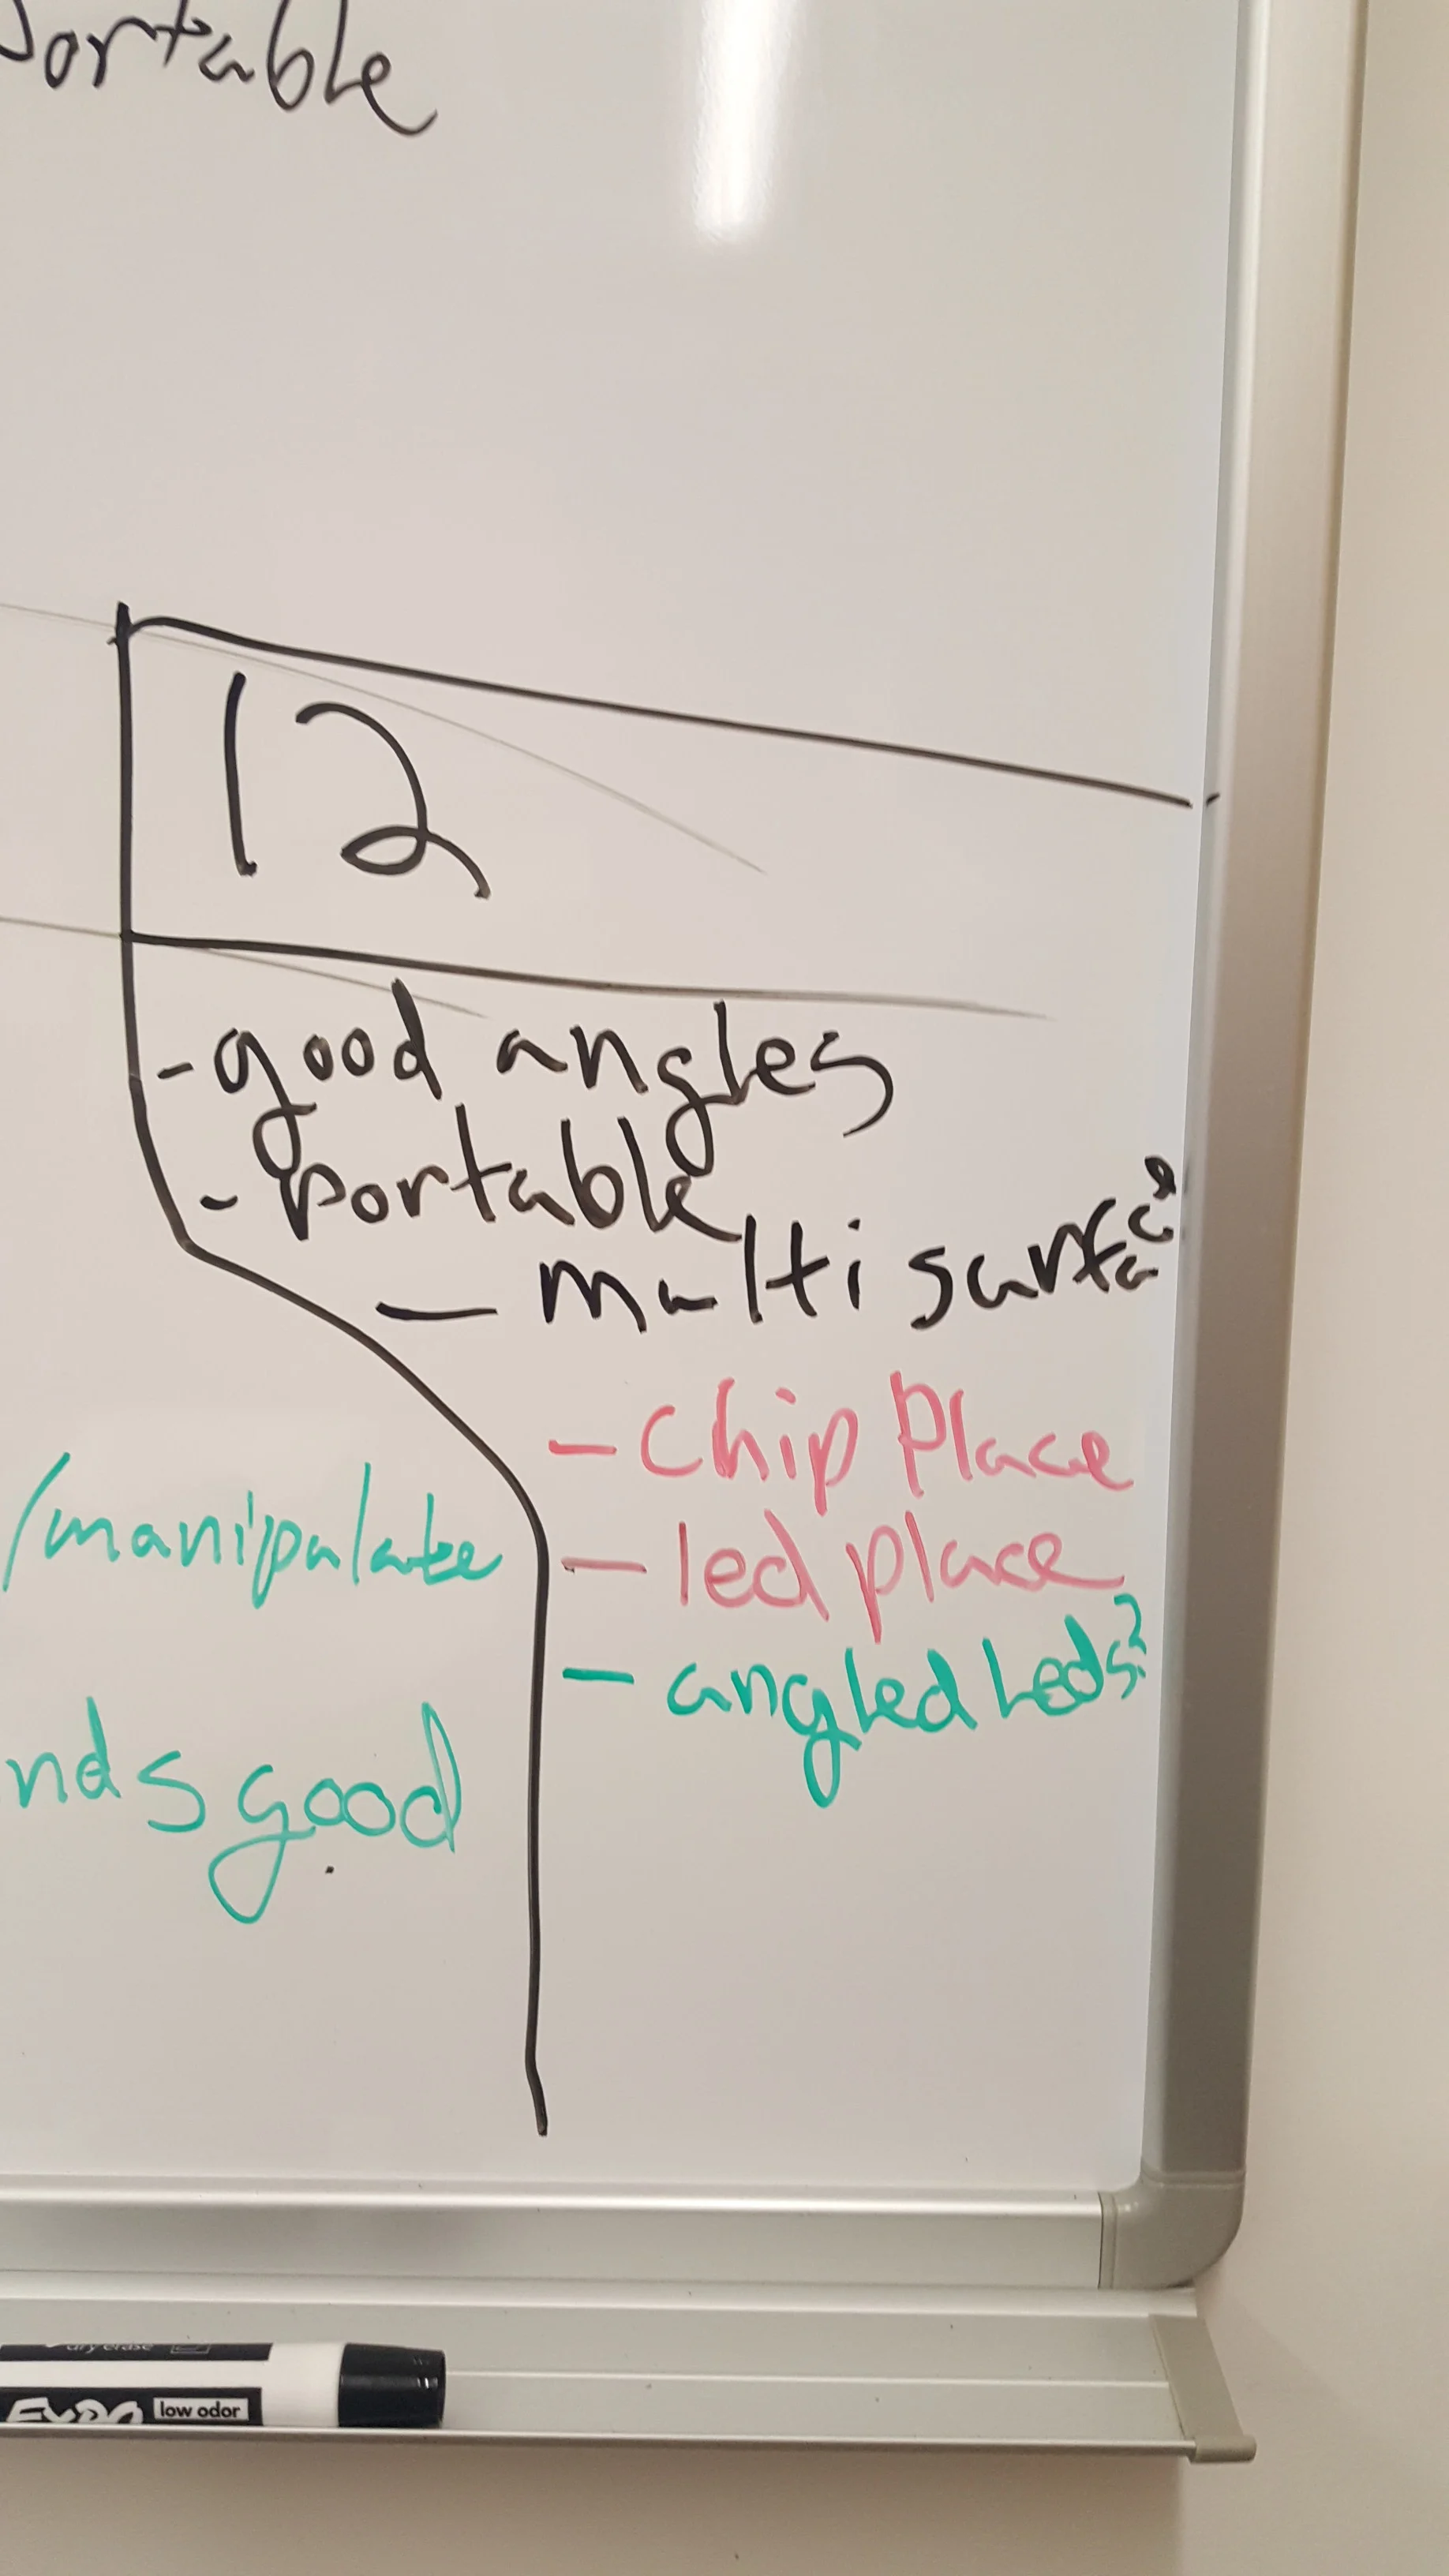 portable
12
- good angles
- portable
- multi surface
- Chip Place
- led place
- angled Leds?
/manipulate
nds good
dry erase
EXPO low odor